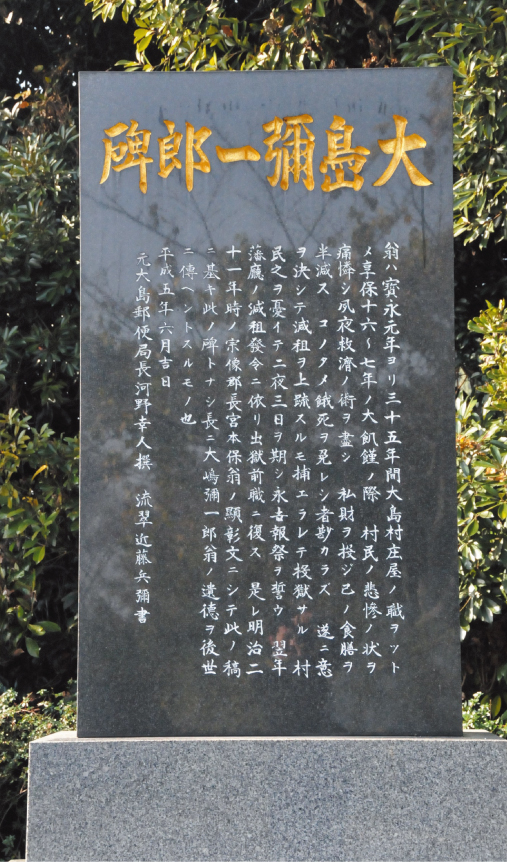 大嶌彌一郎碑
翁ハ寳永元年ヨリ三十五年間大島村庄屋ノ職ヲット
メ享保十六～七年ノ大飢饉ノ際　村民ノ悲惨ノ状ヲ
痛憐シ夙夜救濟ノ術ヲ盡シ　私財ヲ投ジ己ノ食膳ヲ
半減ス　コノタメ餓死ヲ免レシ者尠カラズ　遂ニ意
ヲ決シテ減租ヲ上䟽スルモ捕エラレテ投獄サル　村
民之ヲ憂イテ二夜三日ヲ期シ永吉報祭ヲ誓ウ　翌年
藩廳ノ減租發令ニ依リ出獄前職ニ復ス　是レ明治二
十一年時ノ宗像郡長宮本保翁ノ顯彰文ニシテ此ノ稿
ニ基キ此ノ碑トナシ長ニ大嶋彌一郎翁ノ遺德ヲ後世
ニ傳ヘントスルモノ也
平成五年六月吉日
元大島郵便局長河野幸人撰　流翠近藤兵彌書